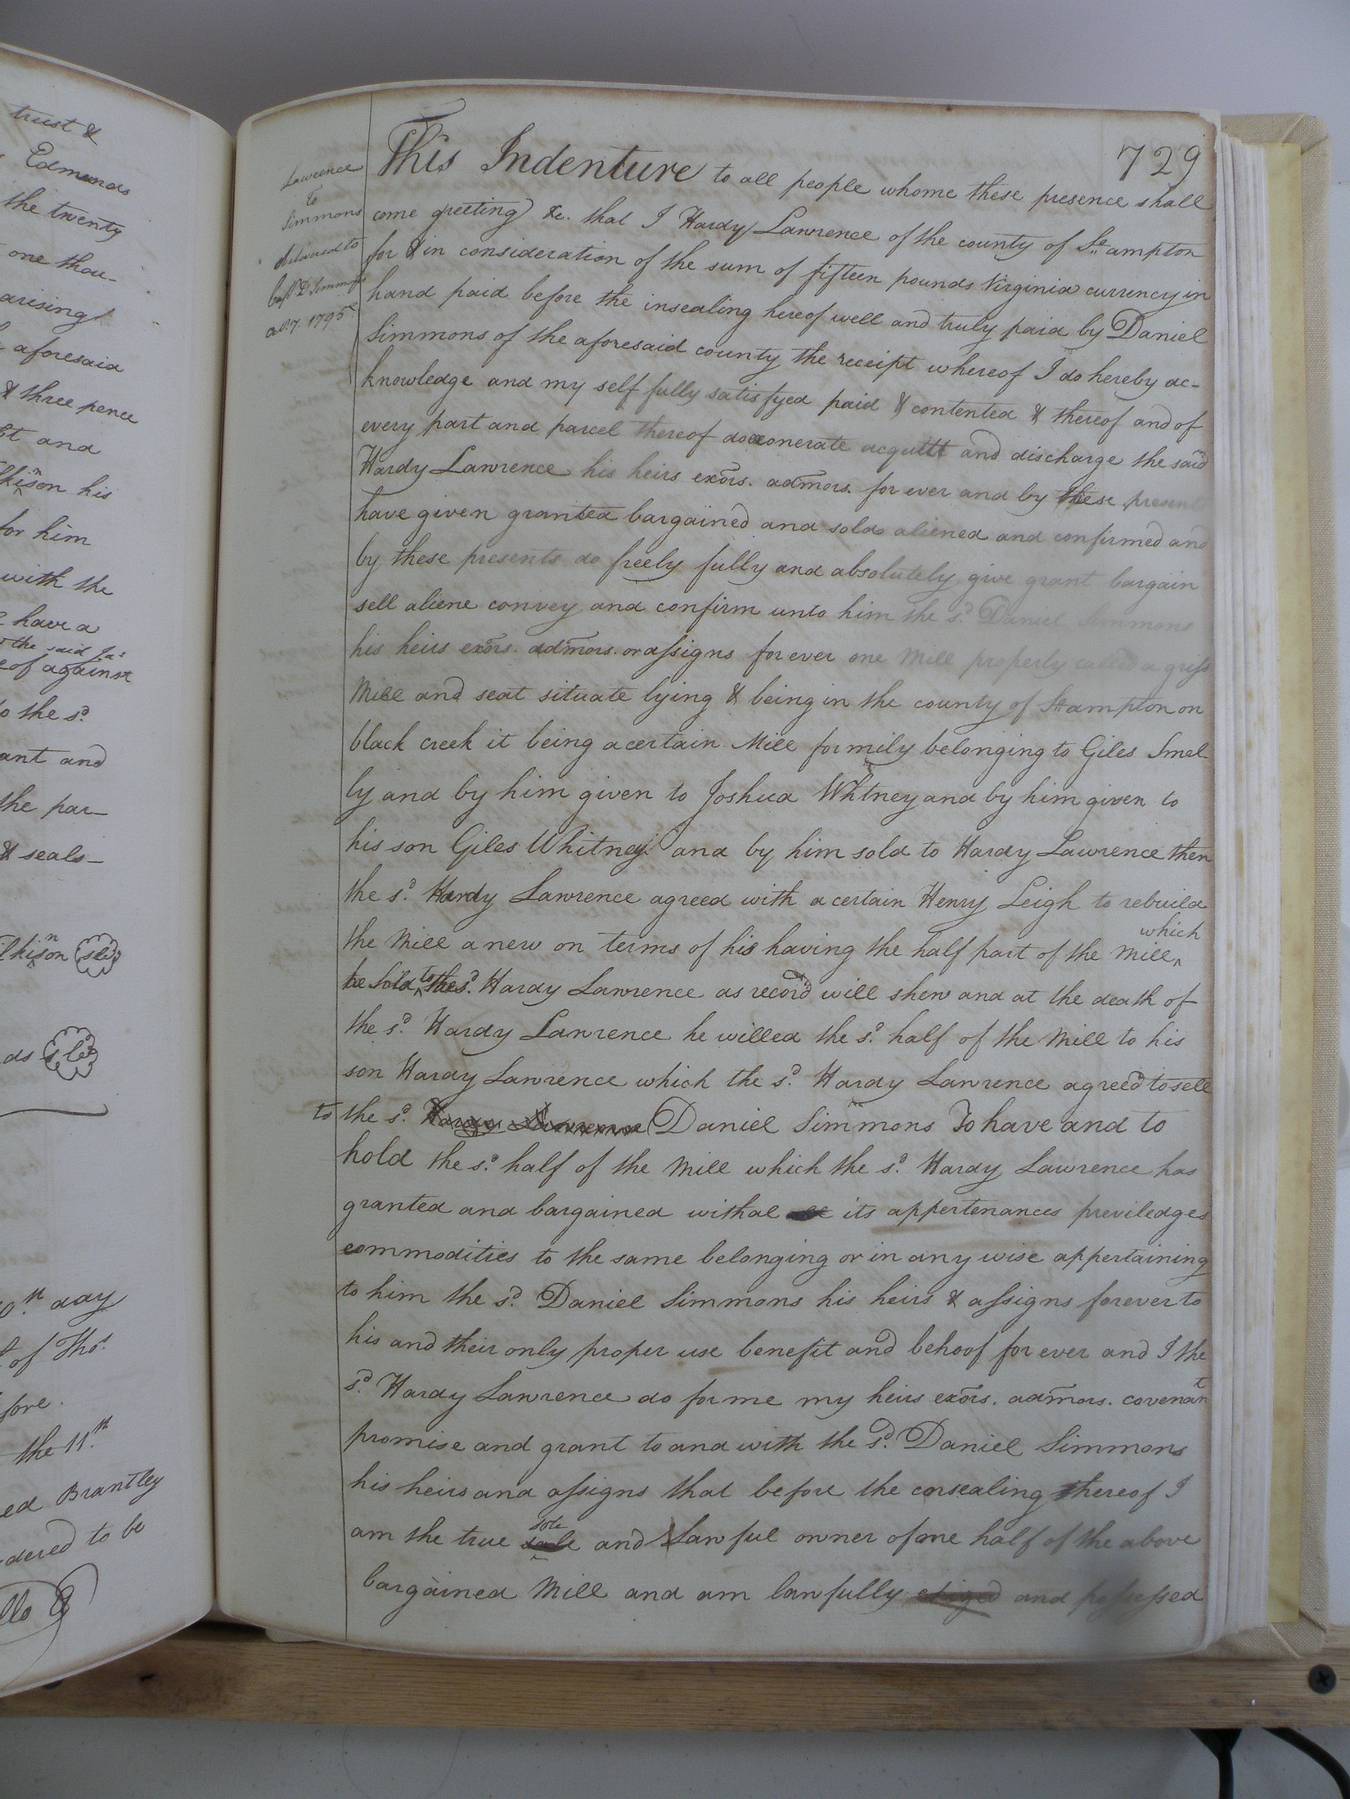 trust &
Edmunds
the twenty
one thou-
arising
aforesaid
& three pence
and
son his
for him
with the
have a
the said Jas
eof against
to the sd
ant and
the par-
& seals-
lkinson
ds
0th day
of Thos.
fore.
the 11th
ed Brantley
dered to be
729
Lawrence
to
Simmons
delivered to
Capt D Simmons
1795
This Indenture to all people whome these presence shall
come greeting &c. that I Hardy Lawrence of the county of So.ampton
for & in consideration of the sum of fifteen pounds Virginia currency in
hand paid before the insealing hereof well and truly paid by Daniel
Simmons of the aforesaid county the receipt whereof I do hereby ac-
knowledge and my self fully satisfyed paid & contented & thereof and of
every part and parcel thereof do exonerate acquitt and discharge the said
Hardy Lawrence his heirs exōrs. admōrs. for ever and by these present
have given granted bargained and sold aliened and confirmed and
by these presents do freely fully and absolutely give grant bargain
sell aliene convey and confirm unto him the sd. Daniel Simmons
his heirs exōrs. admōrs. or assigns forever one Mill property called a griss
Mill and seat situate lying & being in the county of So.ampton on
black creek it being a certain Mill formily belonging to Giles Smel-
ly and by him given to Joshua Whitney and by him given to
his son Giles Whitney and by him sold to Hardy Lawrence then
the sd. Hardy Lawrence agreed with a certain Henry Leigh to rebuild
the Mill a new on terms of his having the half part of the Mill which
he sold to the sd. Hardy Lawrence as record will shew and at the death of
the sd. Hardy Lawrence he willed the sd. half of the Mill to his
son Hardy Lawrence which the sd. Hardy Lawrence agreed to sell
to the sd. Hardy Lawrence Daniel Simmons To have and to
hold the sd. half of the Mill which the sd. Hardy Lawrence has
granted and bargained withal its appertenances previledges
commodities to the same belonging or in any wise appertaining
to him the sd. Daniel Simmons his heirs & assigns forever to
his and their only proper use benefit and behoof for ever and I the
sd. Hardy Lawrence do for me my heirs exōrs. admōrs. covenant
promise and grant to and with the sd. Daniel Simmons
his heirs and assigns that before the ensealing thereof I
am the true sole and lawful owner of one half of the above
bargained Mill and am lawfully and possessed